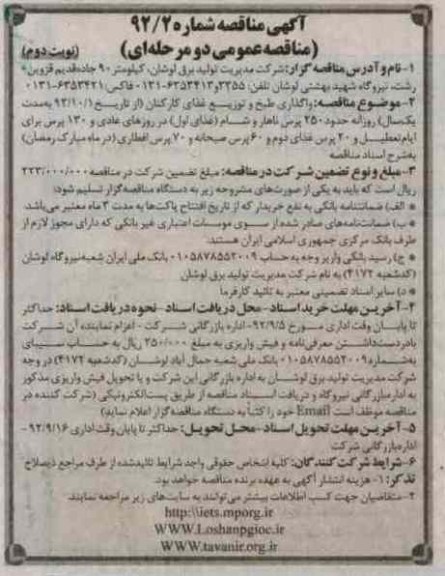 آگهی مناقصه شماره ۹۲/۲
(مناقصه عمومی دو مرحله‌ای) (نوبت دوم)
۱- نام و آدرس مناقصه گزار: شرکت مدیریت تولید برق لوشان، کیلومتر ۹۰ جاده قدیم قزوین-
رشت، نیروگاه شهید بهشتی لوشان تلفن: ۲۳۵۵و۶۳۵۳۴۱۳-۰۱۳۱ فاکس: ۶۳۵۳۴۲۱-۰۱۳۱
۲- موضوع مناقصه: واگذاری طبخ و توزیع غذای کارکنان (از تاریخ ۹۲/۱۰/۱ به مدت
یک‌سال) روزانه حدود ۲۵۰ پرس ناهار و شام (غذای اول) در روزهای عادی و ۱۳۰ پرس برای
ایام تعطیل و ۲۰ پرس غذای دوم و ۶۰ پرس صبحانه و ۷۰ پرس افطاری (در ماه مبارک رمضان)
به شرح اسناد مناقصه
۳- مبلغ و نوع تضمین شرکت در مناقصه: مبلغ تضمین شرکت در مناقصه ۲۲۳/۰۰۰/۰۰۰
ریال است که باید به یکی از صورت‌های مشروحه زیر به دستگاه مناقصه گزار تسلیم شود:
* الف) ضمانتنامه بانکی به نفع خریدار که از تاریخ افتتاح پاکت‌ها به مدت ۳ ماه معتبر می‌باشد.
* ب) ضمانت‌نامه‌های صادر شده از سوی موسسات اعتباری غیر بانکی که دارای مجوز لازم از
طرف بانک مرکزی جمهوری اسلامی ایران هستند.
* ج) رسید بانکی واریز وجه به حساب ۰۱۰۵۸۷۸۵۵۲۰۰۹ بانک ملی ایران شعبه نیروگاه لوشان
(کدشعبه ۴۱۷۲) به نام شرکت مدیریت تولید برق لوشان.
* د) سایر اسناد تضمینی معتبر به تائید کارفرما
۴- آخرین مهلت خرید اسناد- محل دریافت اسناد- نحوه دریافت اسناد: حداکثر
تا پایان وقت اداری مورخ ۹۲/۹/۵- اداره بازرگانی شرکت - اعزام نماینده آن شرکت
با در دست داشتن معرفی‌نامه و فیش واریزی به مبلغ ۲۵۰/۰۰۰ ریال به حساب سیبای
به شماره ۰۱۰۵۸۷۸۵۵۲۰۰۹ بانک ملی شعبه جمال آباد لوشان (کدشعبه ۴۱۷۲) در وجه
شرکت مدیریت تولید برق لوشان به اداره بازرگانی این شرکت و یا تحویل فیش واریزی مذکور
به اداره بازرگانی نیروگاه و دریافت اسناد مناقصه از طریق پست الکترونیکی (شرکت کننده در
مناقصه موظف است Email خود را کتباً به دستگاه مناقصه گزار اعلام نماید)
۵- آخرین مهلت تحویل اسناد- محل تحویل: حداکثر تا پایان وقت اداری ۹۲/۹/۱۶ -
اداره بازرگانی شرکت
۶- شرایط شرکت کنندگان: کلیه اشخاص حقوقی واجد شرایط تائید شده از طرف مراجع ذیصلاح
تذکر: ۱- هزینه انتشار آگهی به عهده برنده مناقصه خواهد بود.
۲- متقاضیان جهت کسب اطلاعات بیشتر می‌توانند به سایت‌های زیر مراجعه نمایند.
http:\\iets.mporg.ir
WWW.Loshanpgioc.ir
WWW.tavanir.org.ir